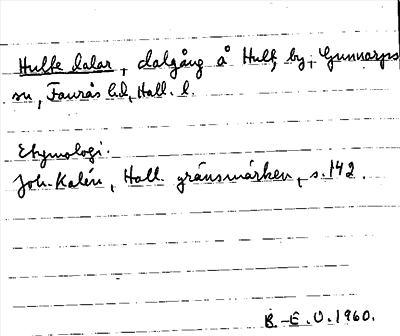 Hulte dalar, dalgång å Hult, by, Gunnarps
sn, Faurås hd, Hall. l.
Etymologi:
Joh. Kalén, Hall. gränsmärken, s. 142.
B.-E. O. 1960.